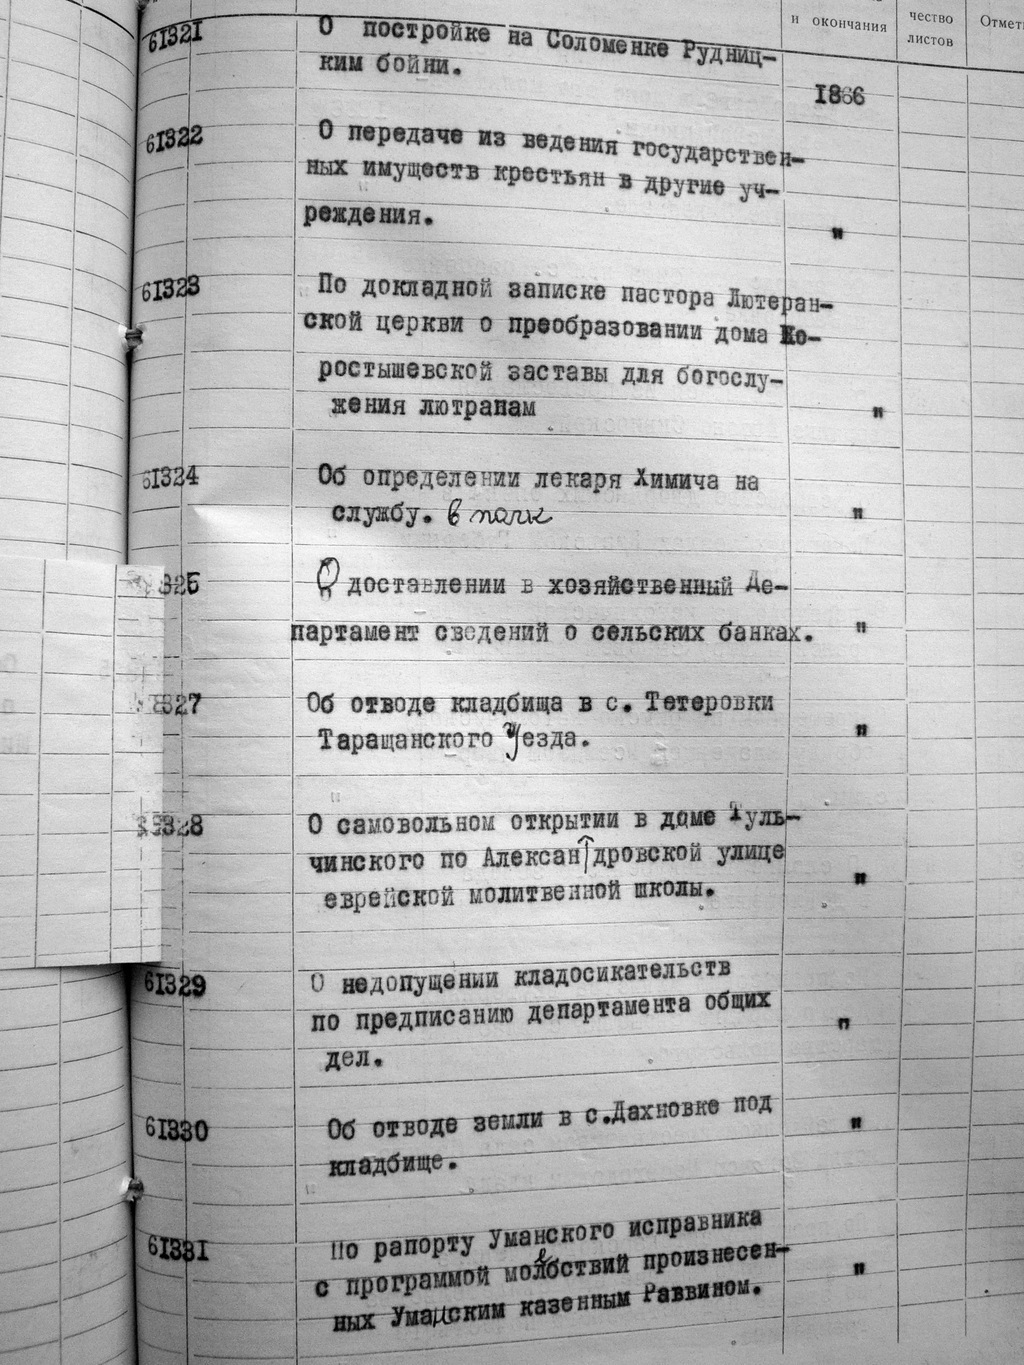 и окончания
чество
листов
Отмет
61321
О постройке на Соломенке Рудниц-
ким бойни.
1866
61322
О передаче из ведения государствен-
ных имуществ крестьян в другие уч-
реждения.
"
61323
По докладной записке пастора Лютеран-
ской церкви о преобразовании дома Ко-
ростышевской заставы для богослу-
жения лютранам
"
61324
Об определении лекаря Химича на
службу. в полк
"
325
О доставлении в хозяйственный Де-
партамент сведений о сельских банках.
"
327
Об отводе кладбища в с. Тетеровки
Таращанского уезда.
"
328
О самовольном открытии в доме Туль-
чинского по Александровской улице
еврейской молитвенной школы.
"
61329
О недопущении кладосикательств
по предписанию департамента общих
дел.
"
61330
Об отводе земли в с.Дахновке под
кладбище.
"
61331
По рапорту Уманского исправника
с программой молебствий произнесен-
ных Уманским казенным Раввином.
"